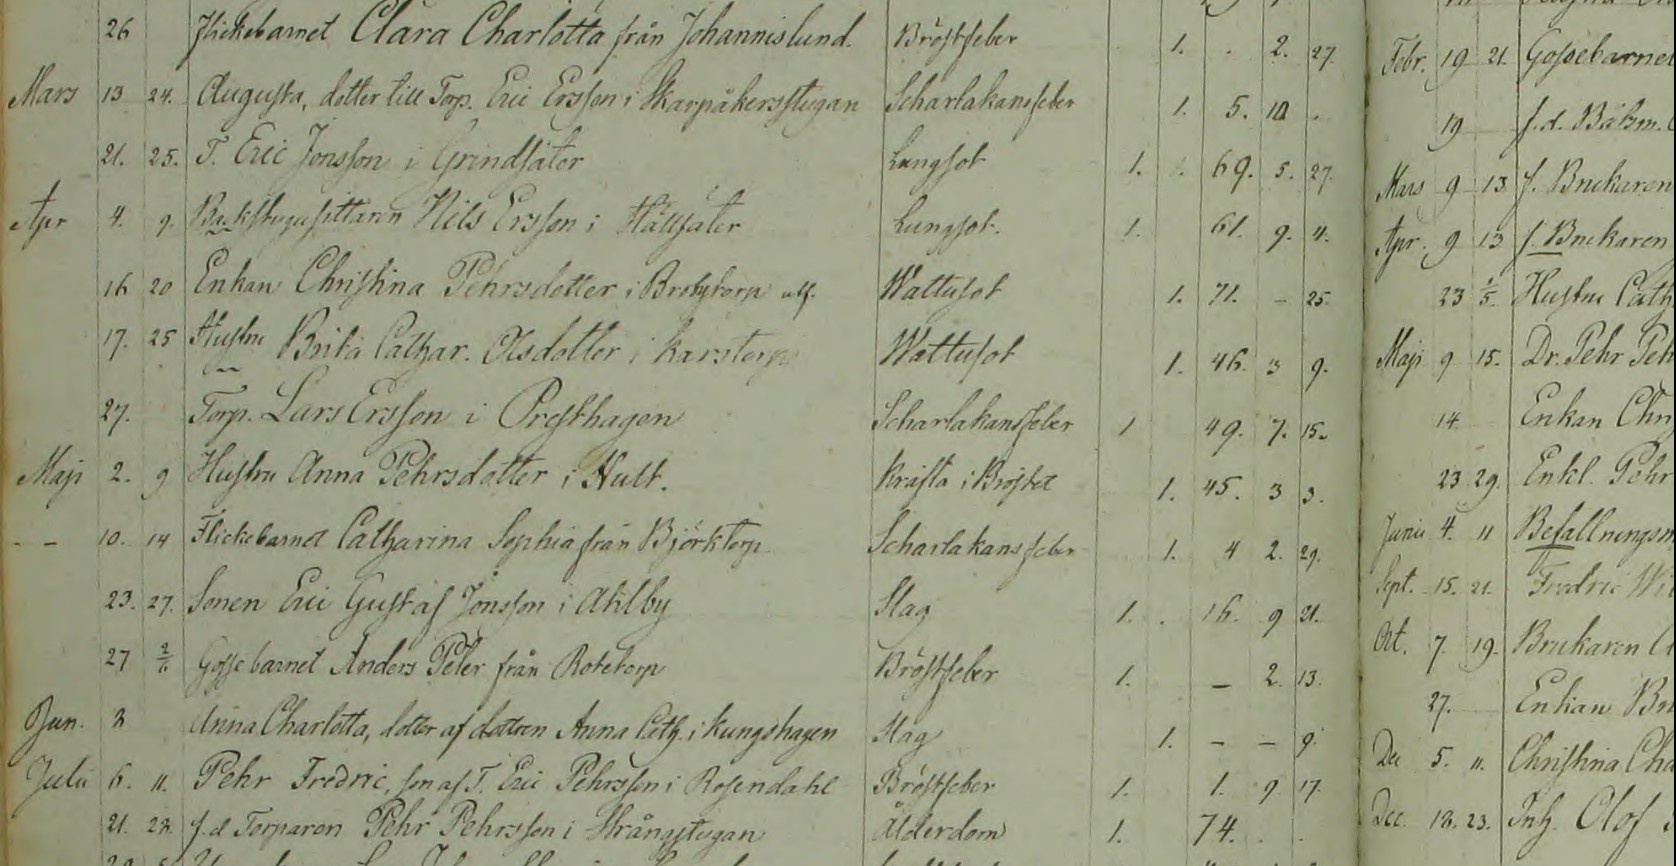 26 Flickebarnet Clara Charlotta från Johannislund. Bröstfeber 1. . 2. 27.
Mars 13 24. Augusta, dotter till Torp. Eric Ersson i Skarpåkersstugan Scharlakansfeber 1. 5. 10 .
21. 25. T. Eric Jonsson i Grindsäter Lungsot 1. . 69. 5. 27.
Apr 4. 9. Backstugusittaren Nils Ersson i Hällsäter Lungsot. 1. 61. 9. 4.
16 20 Enkan Christina Pehrsdotter i Wattusot 1. 71. – 25.
17. 25 Hustru Brita Cathar. Olsdotter i Karstorp Wattusot 1. 46. 3 9.
27. Torp. Lars Ersson i Presthagen Scharlakansfeber 1 49. 7. 15.
Maji 2. 9 Hustru Anna Pehrsdotter i Hult. Kräfta i Bröstet 1. 45. 3 3.
– – 10. 14 Flickebarnet Catharina Sophia från Björktorp. Scharlakansfeber 1. 4 2. 29.
23. 27. Sonen Eric Gustaf Jonsson i Ahlby Slag 1. . 16. 9 21.
27 2/6. Gossebarnet Anders Peter från Rotetorp Bröstfeber 1. – 2. 13.
Jun. 3 Anna Charlotta, dotter af dottren Anna Cath. i Kungshagen Slag 1. – – 9.
Julii 6. 11. Pehr Fredric, son af T. Eric Pehrsson i Rosendahl Bröstfeber 1. 1. 9. 17.
21. 28. f.d Torparen Pehr Pehrsson i Strångstugan Ålderdom 1. 74. . .
Febr. 19 21. Gossebarnet
19 f.d. Båtsm.
Mars 9 13. f. Brukaren
Apr. 9 13 f. Brukaren
23 1/5. Hustru Cath
Maji 9 15. Dr. Pehr Peh
14 Enkan Chri
23 29. Enkl. Pehr
Junii 4. 11 Befallningsm
Sept. 15. 21. Fredric Wil
Oct. 7. 19. Brukaren
27. Enkan Br
Dec 5. 11. Christina Cha
Dec. 18. 23. Inh. Olof